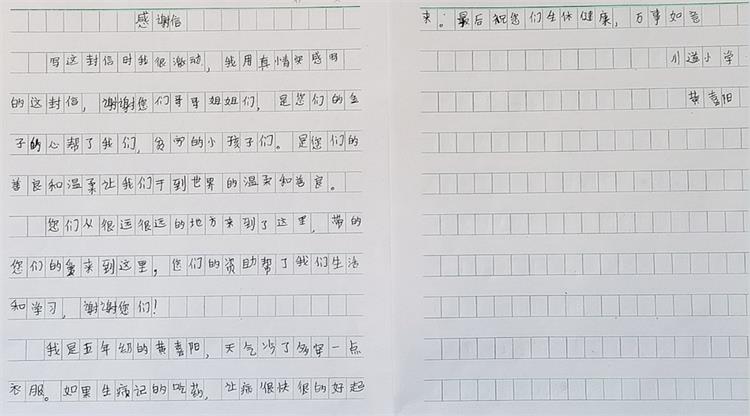 感谢信
写这封信时我很激动，我用真情实感写
的这封信，谢谢您们哥哥姐姐们，是您们的金
子的心帮了我们，贫穷的小孩子们。是您们的
善良和温柔让我们于到世界的温柔和善良。
您们从很远很远的地方来到了这里，带的
您们的爱来到这里，您们的资助帮了我们生活
和学习，谢谢您们！
我是五年幼的黄喜阳，天气冷了多穿一点
衣服。如果生病记的吃药，让病很快很的好起
来。最后祝您们生体健康，万事如意
川道小学
黄喜阳